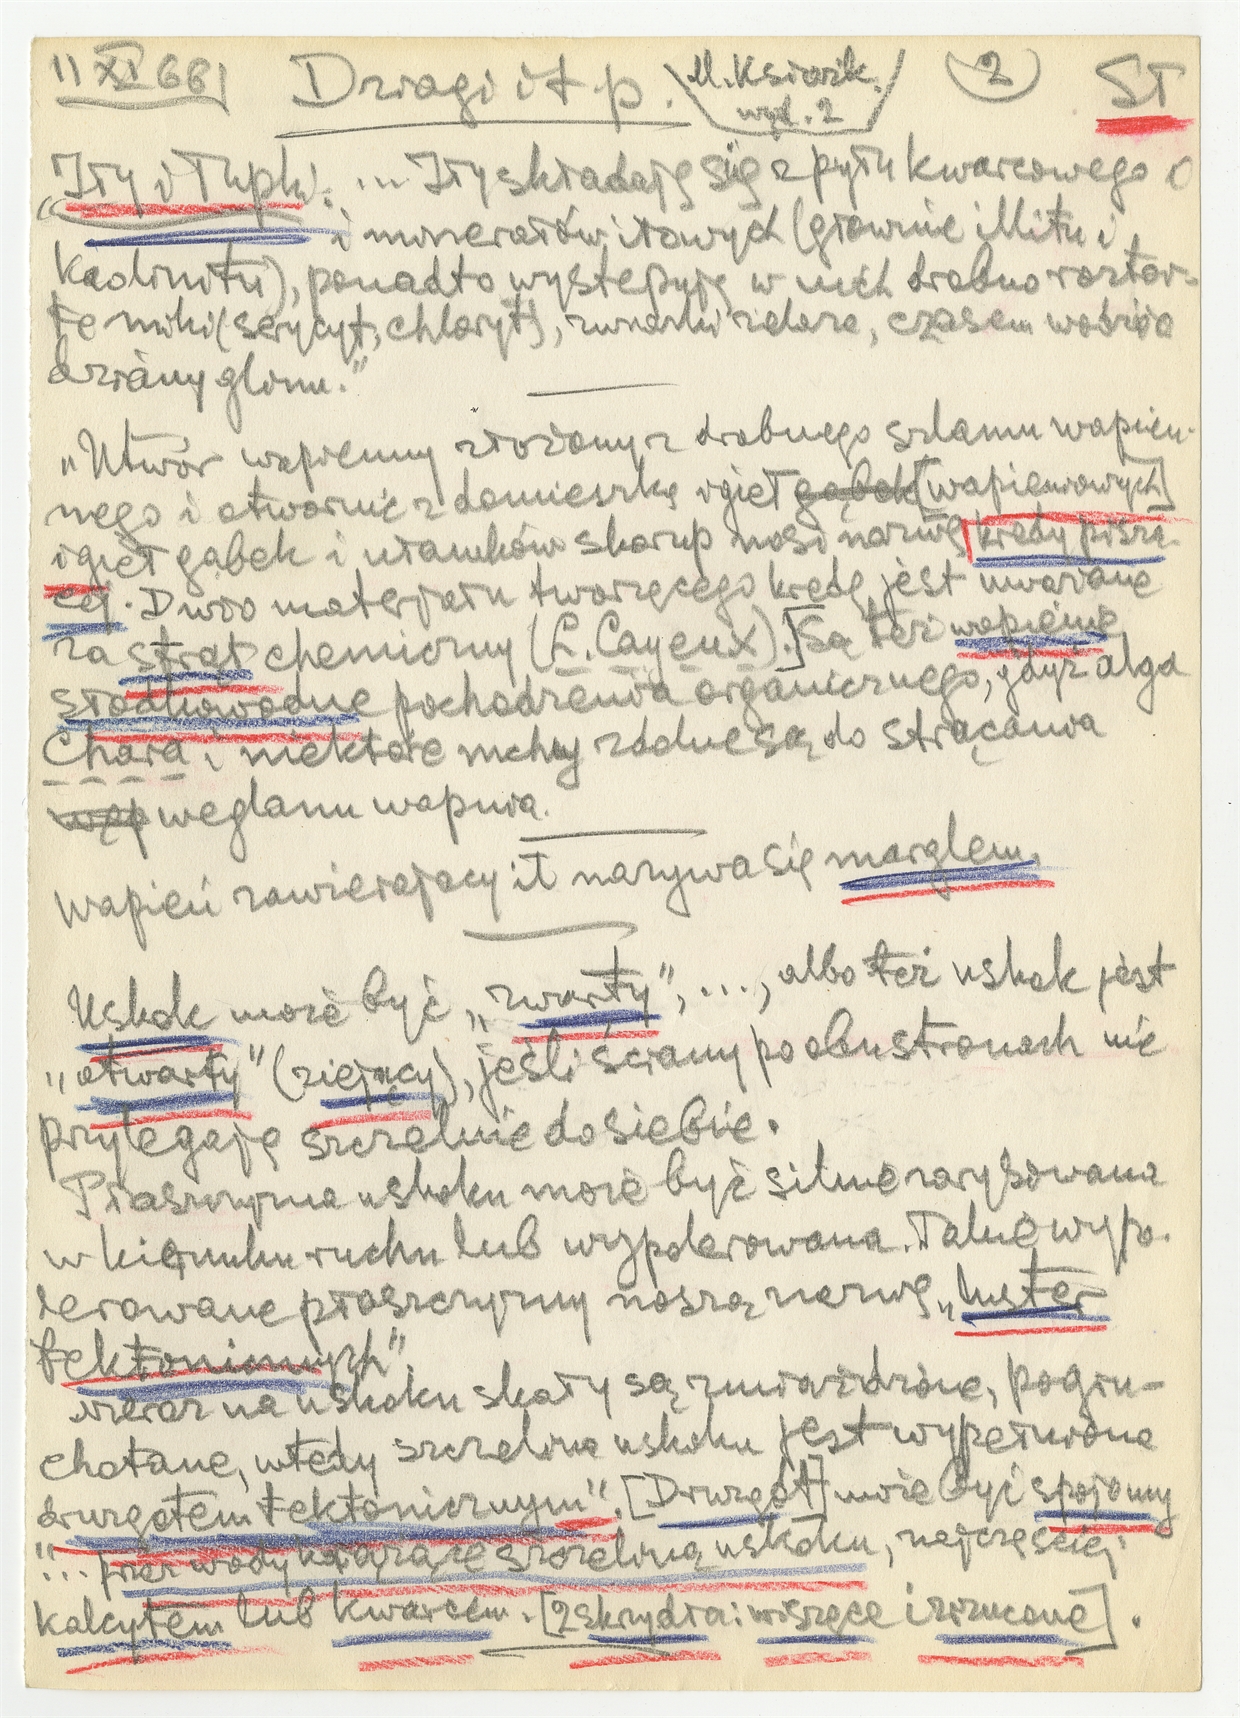 11 XI 66 Dziagi i t p. M. Książk. wyd. 2 2 ST
"Iły i łupki: ... Iły składają się z pyłu kwarcowego
i minerałów iłowych (głównie illitu i
kaolinitu), ponadto występują w nich drobno roztar-
te miki (serycyt, chloryt), związki żelaza, czasem
glinu."
"Utwór wapienny złożony z drobnego szlamu wapien-
nego i otwornic z domieszką igieł gąbek [wapieniowych]
igieł gąbek i ułamków skorup nosi nazwę kredy piszą-
cej. Dużo materjału tworzącego kredę jest uważane
za strąt chemiczny (L. Cayeux).] Są też wapienie
słodkowodne pochodzenia organicznego, gdyż alga
Chara i niektóre mchy zdolne są do strącania
węp węglanu wapnia.
Wapień zawierający ił nazywa się marglem.
Uskok może być "zwarty", ..., albo też uskok jest
"otwarty" (ziejący), jeśli ściany po obu stronach nie
przylegają szczelnie do siebie.
Płaszczyzna uskoku może być silnie zarysowana
w kierunku ruchu lub wypolerowana. Takie wypo-
lerowane płaszczyzny noszą nazwę "luster
tektonicznych".
Nieraz na uskoku skały są zmiażdżone, pogru-
chotane, wtedy szczelina uskoku jest wypełniona
druzgotem tektonicznym". [Druzgot] może być spojony
"... przez wody krążące szczeliną uskoku, najczęściej
kalcytem lub kwarcem. [2 skrzydła: wiszące i zrzucone].